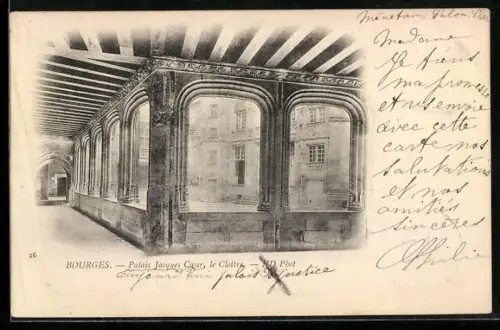 Madame
Je tiens
ma promesse
et vous envoie
avec cette
carte nos
salutations
et nos
amitiés
sincères
26
BOURGES. — Palais Jacques Cœur, le Cloître. — ND Phot
aujourd'hui palais de justice